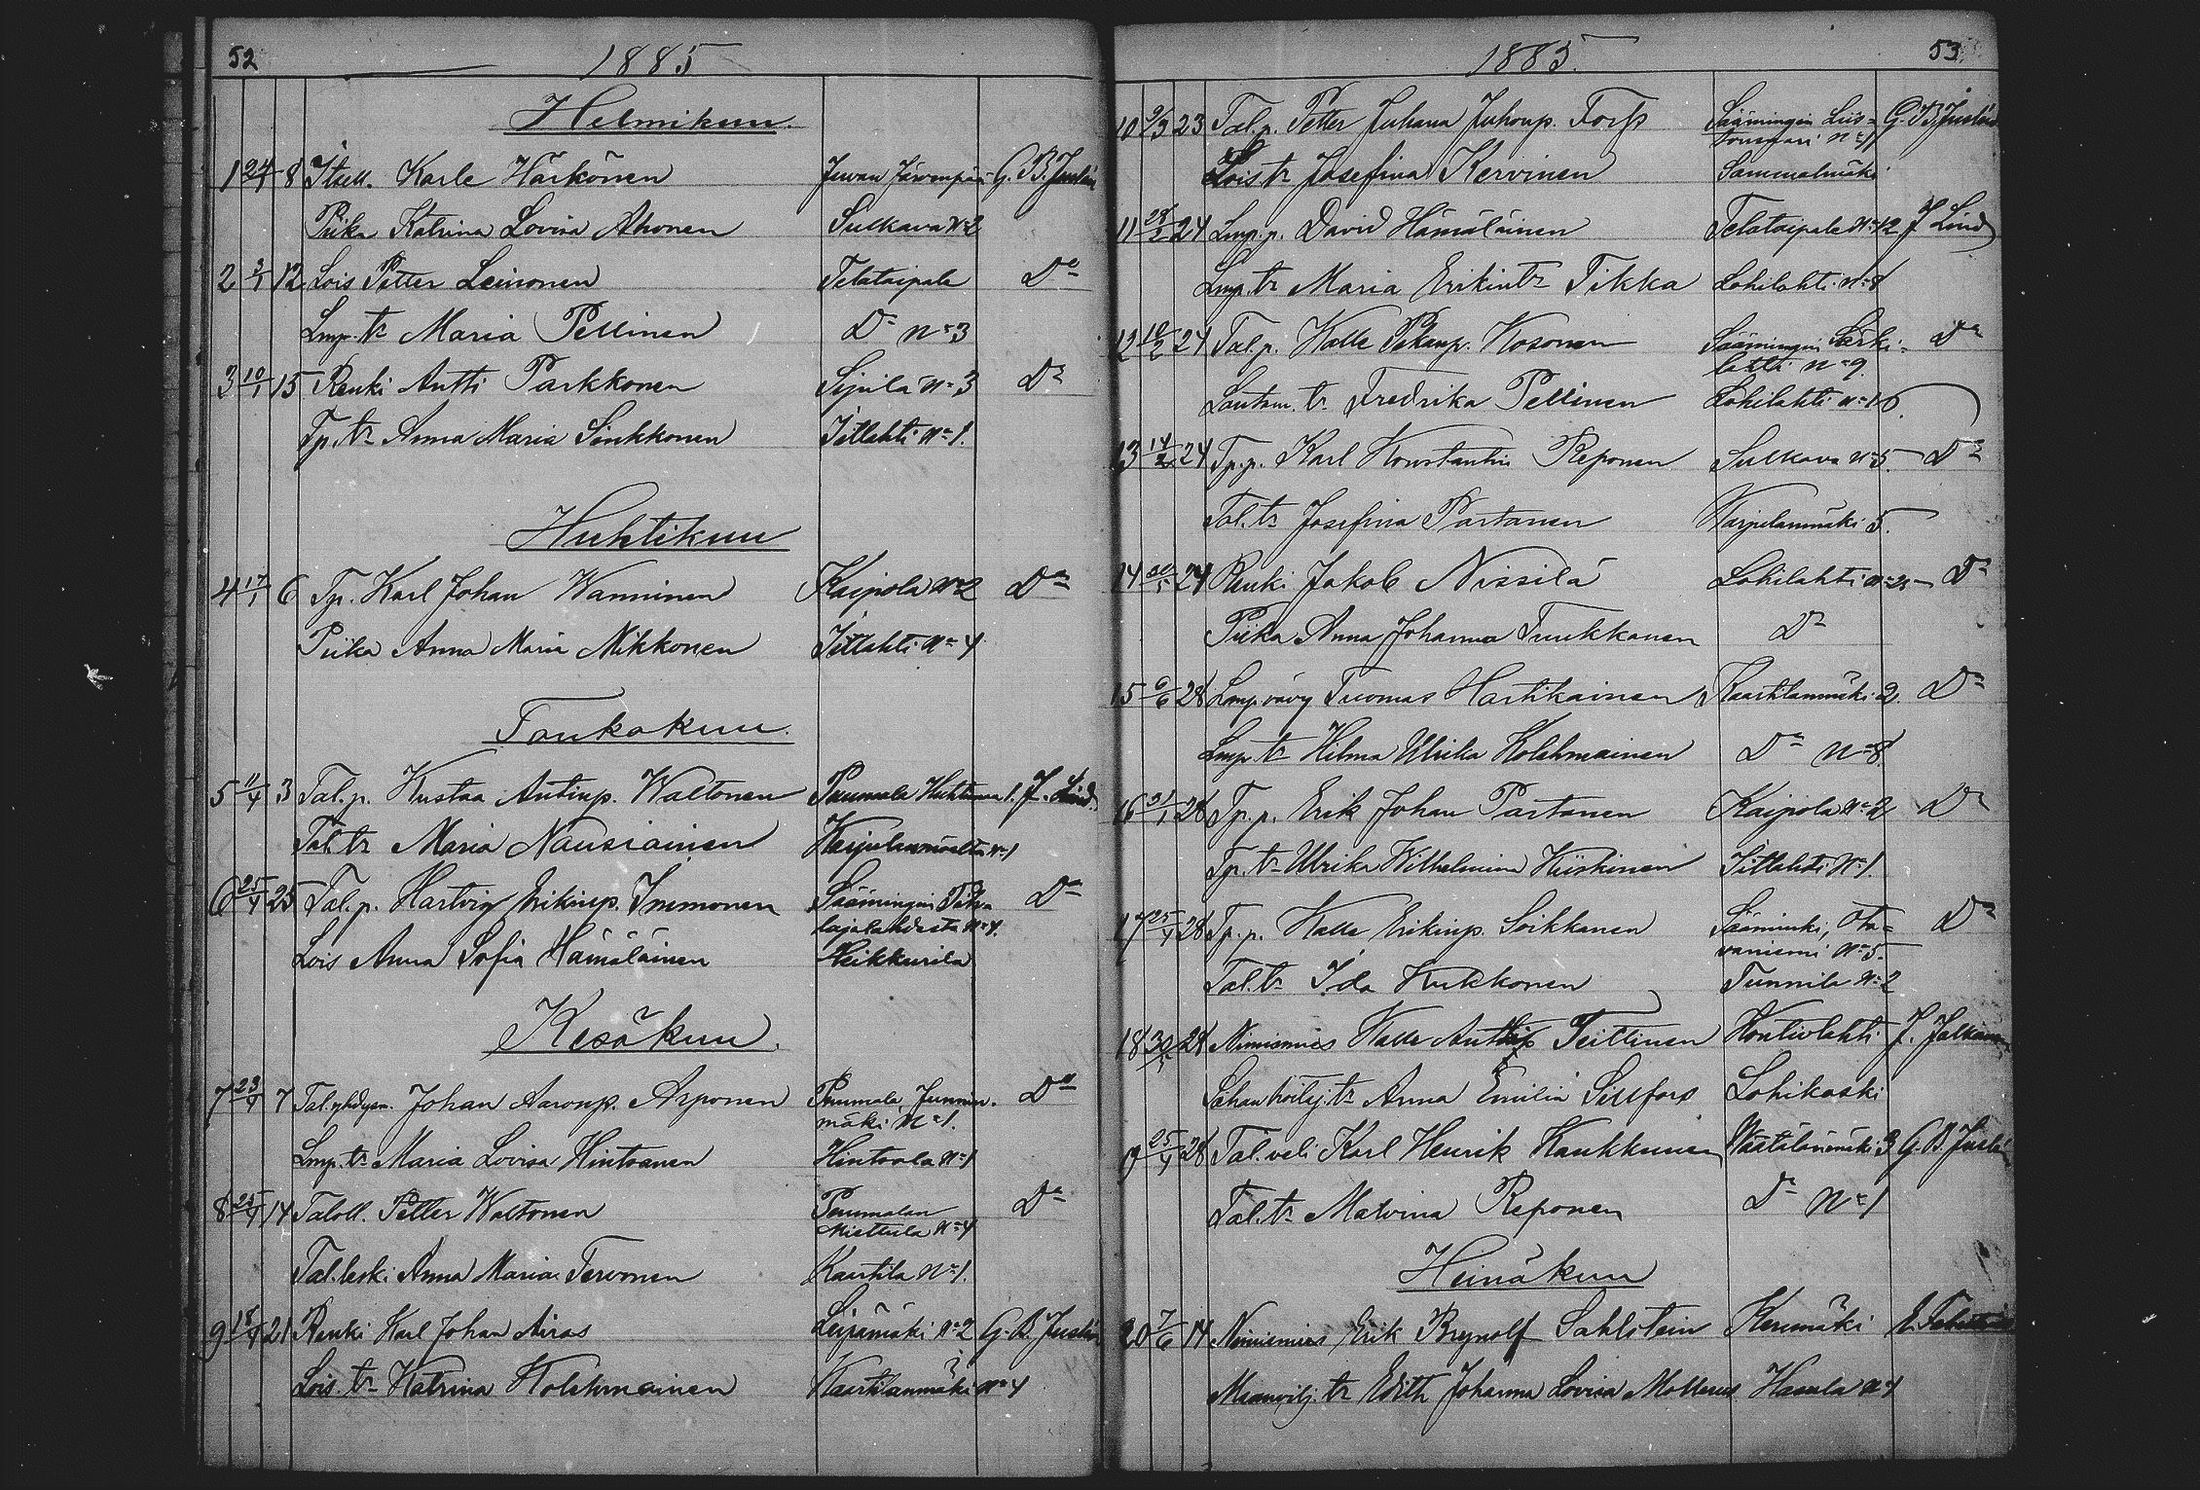 52 1885
Helmikuu.
1 24/1 8 Itsell. Karle Härkönen Juvan Järvenpää G. B. Juslén
Piika Katrina Lovisa Ahonen Sulkava N=2
2 3/1 12 Lois Petter Leinonen Telataipale Do
Lmp. tr Maria Pellinen Do N=3
3 10/1 15 Renki Antti Parkkonen Sipilä N=3 Do
Tp. tr Anna Maria Sinkkonen Iitlahti N=1.
Huhtikuu
4 17/1 6 Tp. Karl Johan Wanninen Kaipola N=2 Do
Piika Anna Maria Nikkonen Iitlahti N=4
Toukokuu.
5 11/4 3 Tal. p. Kustaa Antinp. Waltonen Puumala 1. J. Lind.
Tal. tr Maria Nausiainen N=1
6 25/4 25 Tal. p. Hartvig Erikinp. Immonen Säämingin Do
N=4.
Lois Anna Sofia Hämäläinen Heikkurila
Kesäkuu.
7 23/4 7 Johan Aaronp. Arponen Puumala, Do
mäki N=1.
Lmp. tr Maria Lovisa Hintsanen Hintsala N=1
8 25/4 14 Taloll. Petter Waltonen Puumalan Do
Miettula N=4
Tal. leski Anna Maria Tervonen Kaartila N=1.
9 21 Renki Karl Johan Airas Leipämäki N=2 G. B. Juslén
Lois. tr Katrina Kolehmainen Kaartilanmäki N=4
1885. 53.
10 9/3 23 Tal. p. Petter Juhana Juhonp. Forss Säämingin G. B. Juslén
N=1
Lois tr Josefina Kervinen Sammalmäki
11 24 Lmp. p. David Hämäläinen Telataipale N=12 J Lind
Lmp. tr Maria Erikintr Tikka Lohilahti N=8
12 24 Tal. p. Kalle Pekanp. Kosonen Säämingin Särki- Do
lahti N=9.
Lautam. tr Fredrika Pellinen Lohilahti N=16.
13 14/2 24 Tp. p. Karl Konstantin Reponen Sulkava N=5. Do
Tal. tr Josefina Partanen Karjulanmäki 5.
14 24 Renki Jakob Nissilä Lohilahti Do
Piika Anna Johanna Tuukkanen Do
15 6/6 28 Lmp. vävy Tuomas Hartikainen Kaartilanmäki 2. Do
Lmp. tr Hilma Ulrika Kolehmainen Do N=8.
16 28 Tp. p. Erik Johan Partanen Kaipola N=2 Do
Tp. tr Ulrika Wilhelmina Kiiskinen Iitlahti N=1.
17 25/4 28 Tp. p. Kalle Erikinp. Soikkanen Sääminki, Ota- Do
vaniemi N=5.
Tal. tr Ida Kukkonen Tunnila N=2
18 28 Nimismies Kalle Teittinen Kontiolahti J.
tr Anna Emilia Sillfors Lohikoski
19 25/4 28 Tal. veli Karl Henrik Kaukkunen 3 G. B. Juslén
Tal. tr Malvina Reponen Do N=1
Heinäkuu
20 7/6 14 Nimismies Erik Brynolf Sahlstein Kerimäki
tr Edith Johanna Lovisa Molterus Hasula N=4